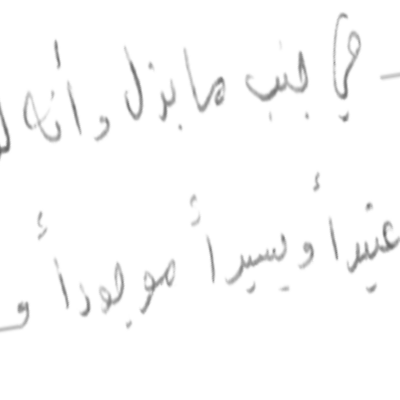 في جنب ما بذل وأنه
أو يسيراً موجوداً